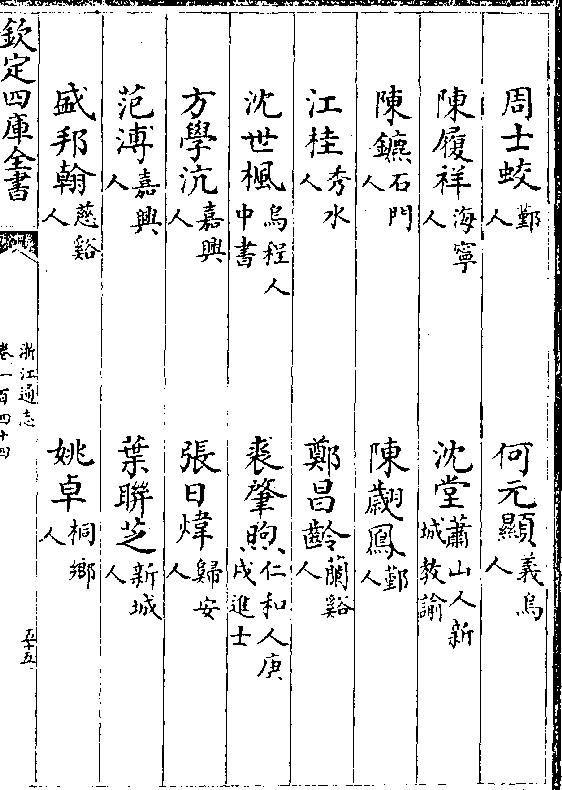 周士蛟鄞人 何元顯義烏人
陳履祥海寧人 沈堂蕭山人新城教諭
陳鑣石門人 陳翽鳳鄞人
江桂秀水人 鄭昌齡蘭谿人
沈世楓烏程人中書 裘肇煦仁和人庚戌進士
方學沆嘉興人 張日煒歸安人
范溥嘉興人 葉聨芝新城人
盛邦翰慈谿人 姚卓桐鄉人
欽定四庫全書
浙江通志
卷一百四十四
五十五